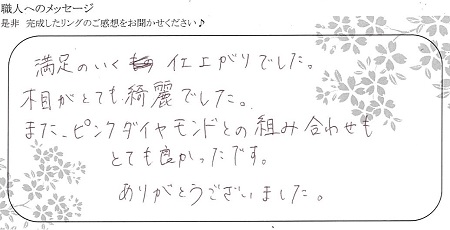 職人へのメッセージ
是非 完成したリングのご感想をお聞かせください♪
満足のいく 仕上がりでした。
木目がとても綺麗でした。
また、ピンクダイヤモンドとの組み合わせも
とても良かったです。
ありがとうございました。